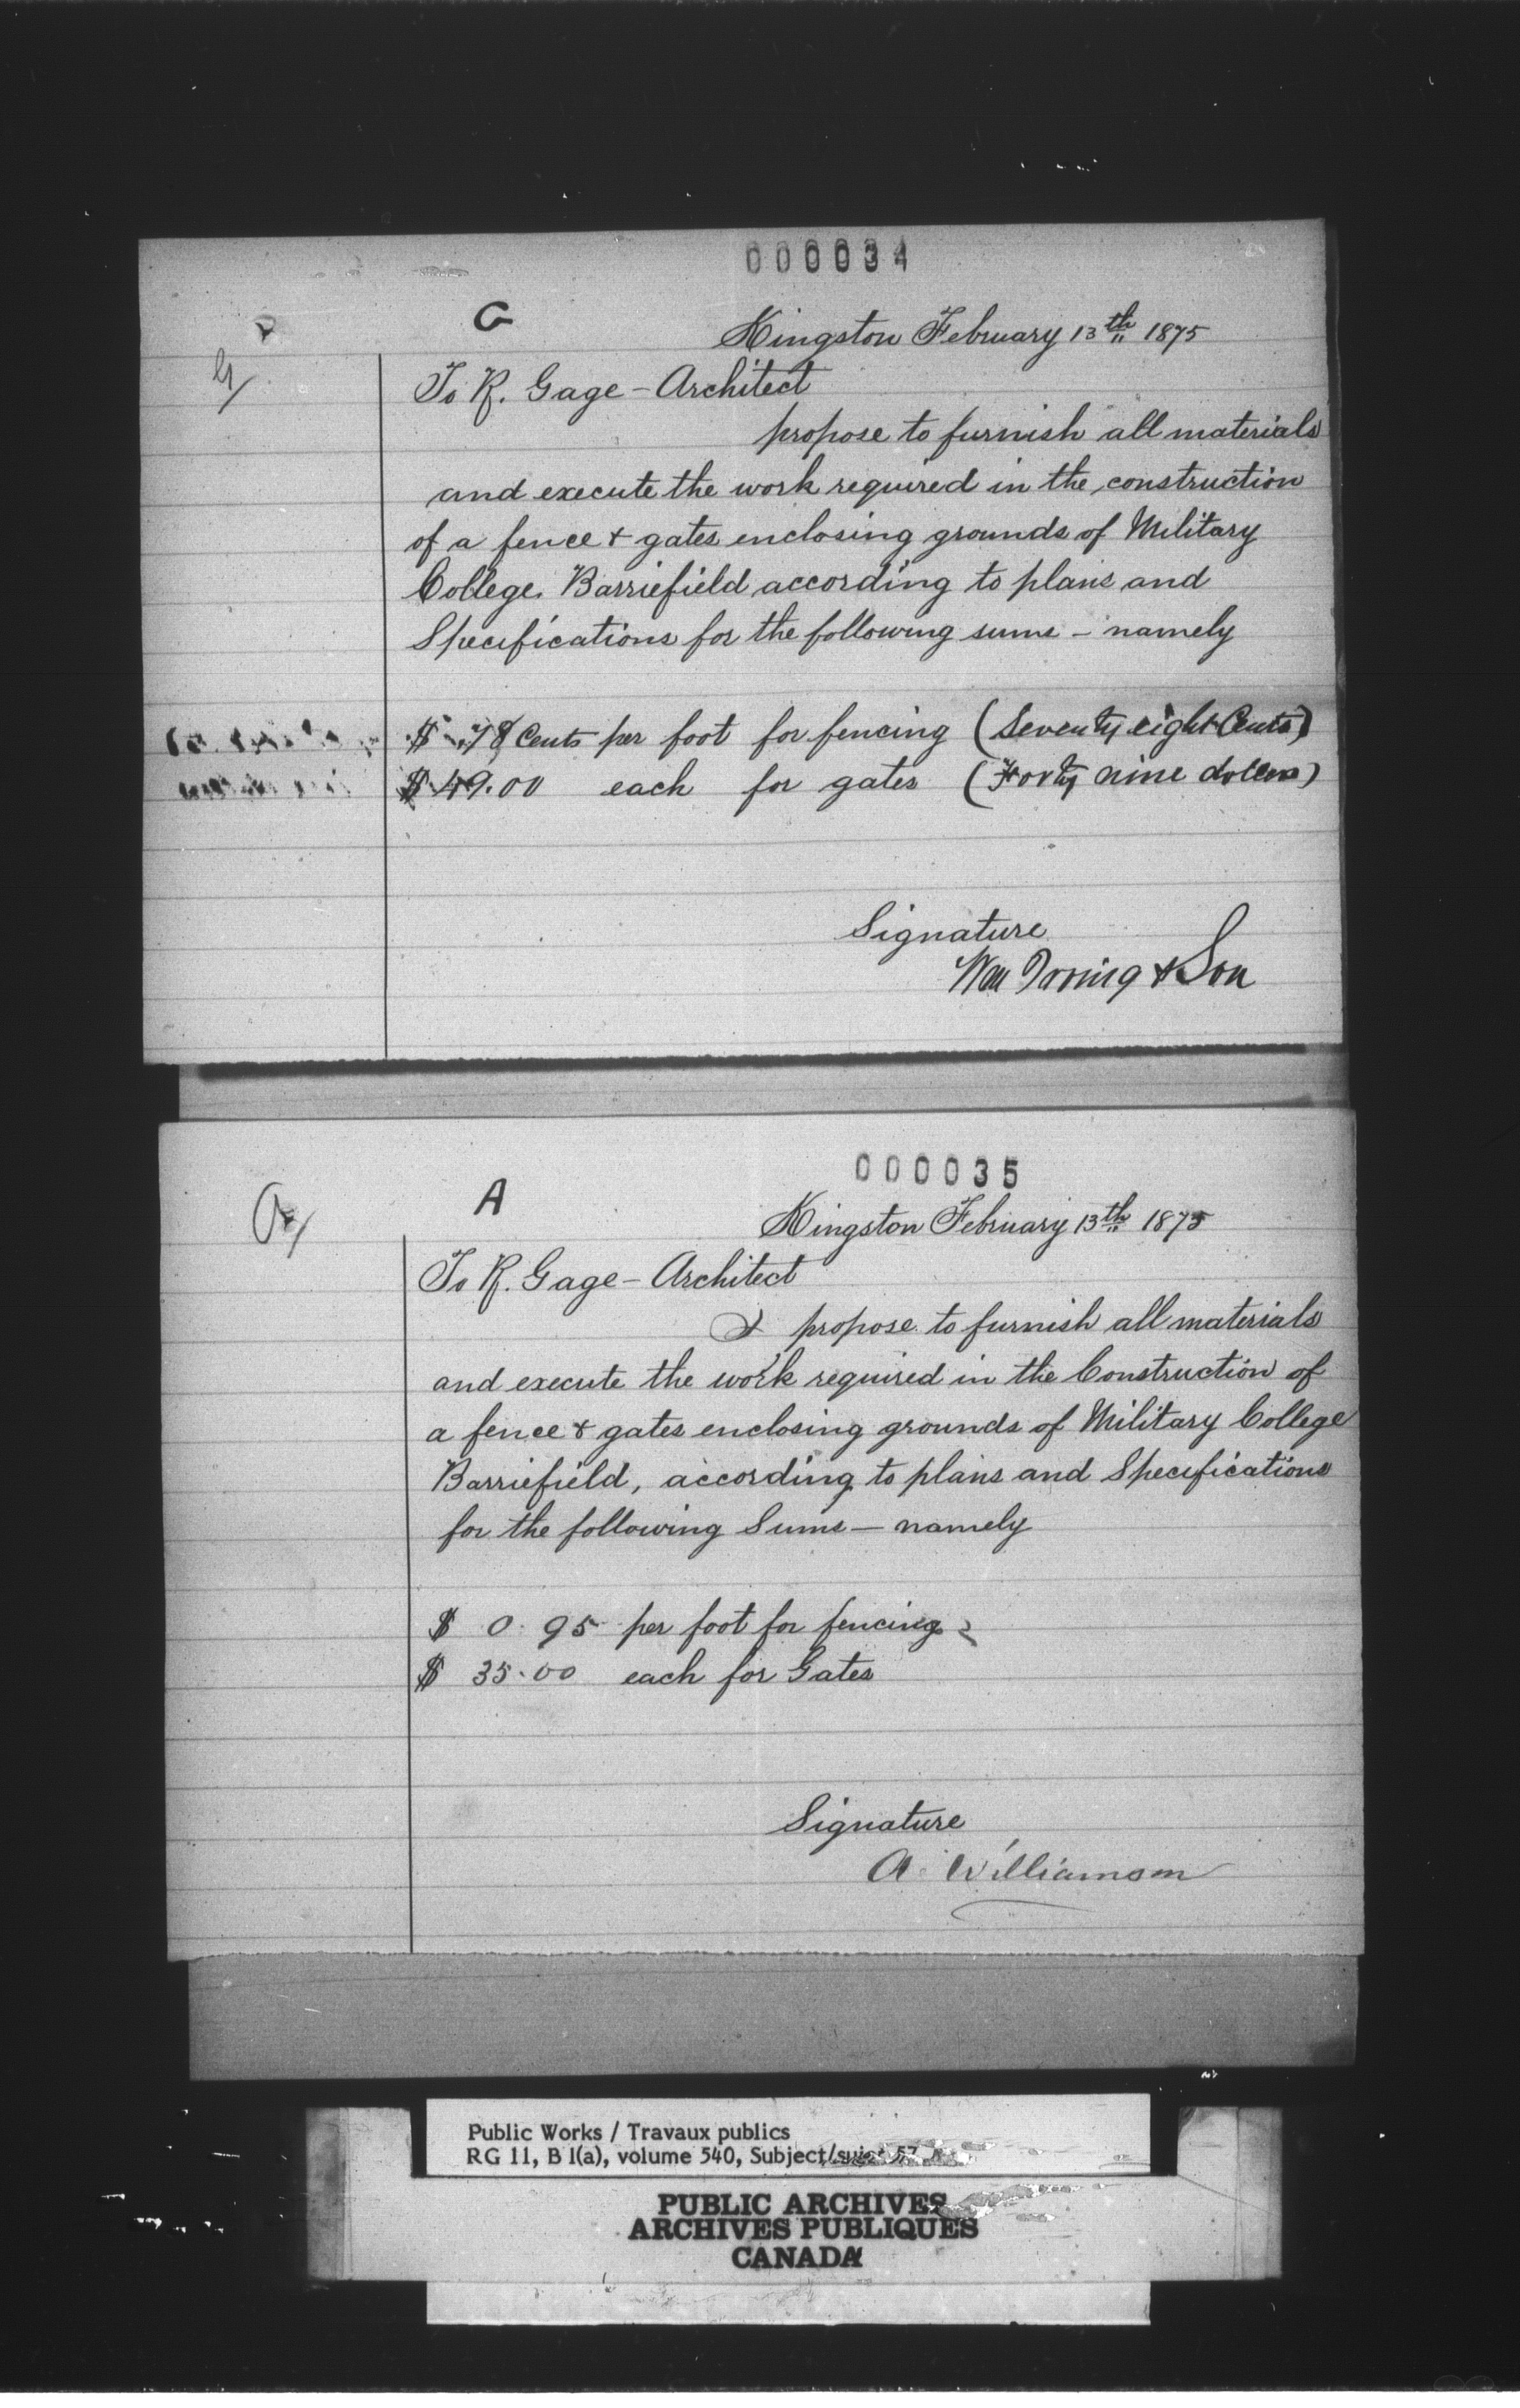 000034
G
Kingston February 13th 1875
G/
To R. Gage - Architect
propose to furnish all materials
and execute the work required in the construction
of a fence & gates enclosing grounds of Military
College. Barriefield according to plans and
Specifications for the following sums - namely
$ .78 Cents per foot for fencing (Seventy eight Cents)
$ 49.00 each for gates (Forty nine dollars)
Signature
Wm Irving & Son
000035
A
A/
Kingston February 13th 1875
To R. Gage - Architect
I propose to furnish all materials
and execute the work required in the Construction of
a fence & gates enclosing grounds of Military College
Barriefield, according to plans and Specifications
for the following Sums - namely
$ 0.95 per foot for fencing
$ 35.00 each for Gates
Signature
A. Williamson
Public Works / Travaux publics
RG 11, B 1(a), volume 540, Subject/sujet 57
PUBLIC ARCHIVES
ARCHIVES PUBLIQUES
CANADA